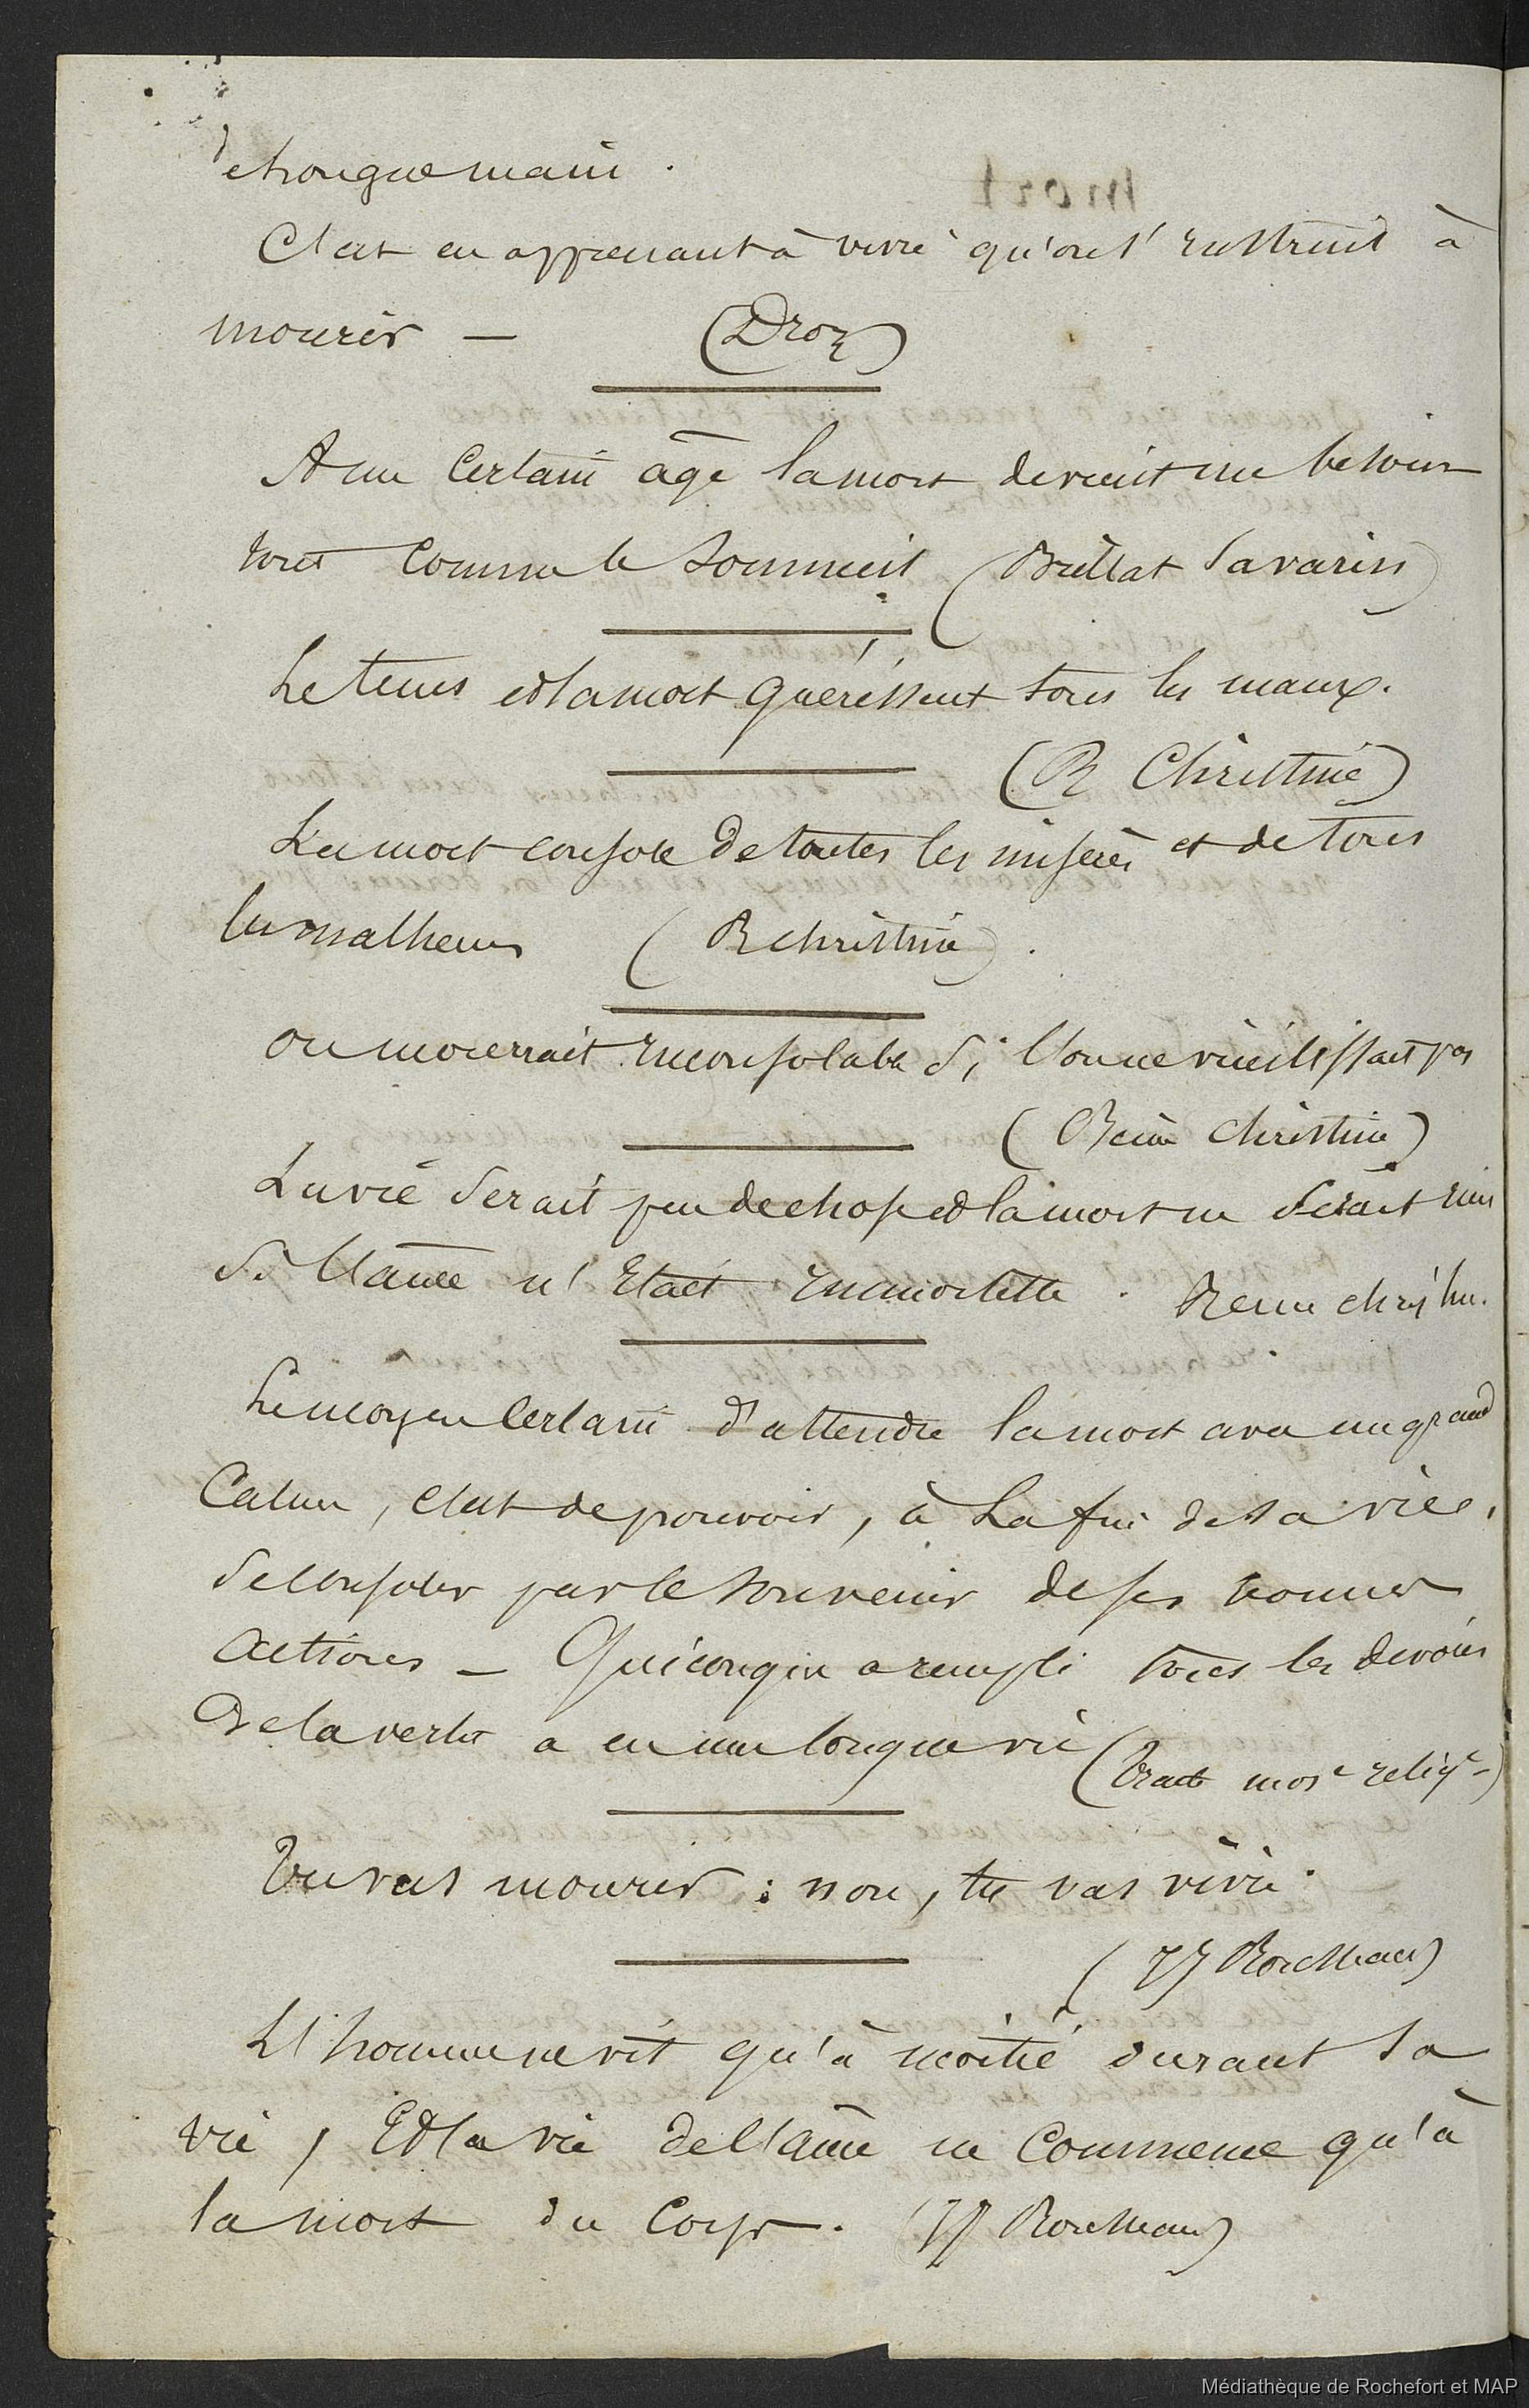 de longue main.
C'est en apprenant à vivre qu'on s'instruit à
mourir — (Droz)
A un certain âge la mort devient un besoin
tout comme le sommeil (Brillat Savarin)
Le tems et la mort guérissent tous les maux.
(R Christine)
La mort console de toutes les misères et de tous
les malheurs (R christine).
on mourrait inconsolable si l'on ne vieillissait pas
(Reine christine)
La vie serait peu de chose et la mort ne serait rien
si l'âme n'était immortelle. Reine christine.
Le moyen certain d'attendre la mort avec un grand
calme, c'est de pouvoir, à la fin de sa vie,
se consoler par le souvenir de ses bonnes
actions — Quiconque a rempli tous les devoirs
de la vertu a eu une longue vie (Trait morl relige)
Tu vas mourir : non, tu vas vivre.
(JJ Rousseau)
L'homme ne vit qu'à moitié durant sa
vie, Et la vie de l'âme ne commence qu'à
la mort du corps. (JJ Rousseau)
Médiathèque de Rochefort et MAP